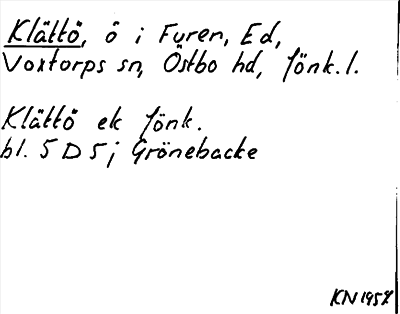 Klättö, ö i Furen, Ed,
Voxtorps sn, Östbo hd, Jönk. l.
Klättö ek Jönk.
bl. 5 D 5 j Grönebacke